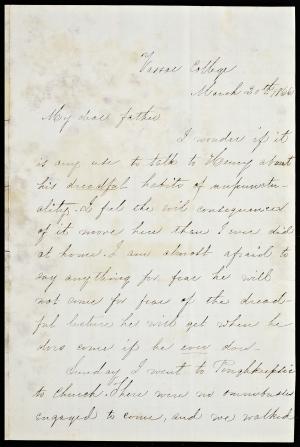 Vassar College
March 20th, 1866
My dear father
I wonder if it
is any use to talk to Henry about
his dreadful habits of unpunctu-
ality. I feel the evil consequences
of it more here than I ever did
at home. I am almost afraid to
say anything for fear he will
not come for fear of the dread-
ful lecture he will get when he
does come if he ever does.
Sunday I went to Poughkeepsie
to church. There were no omnibusses
engaged to come, and we walked